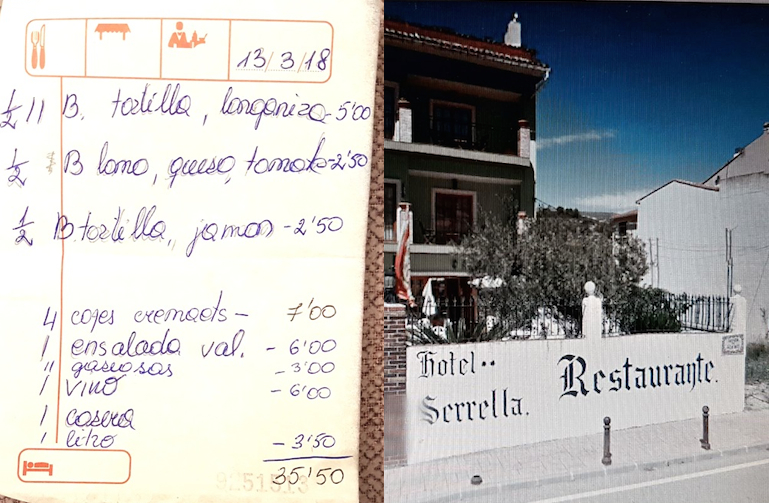 13/3/18
1/2 11 B. tortilla, longaniza - 5'00
1/2 B lomo, queso, tomate - 2'50
1/2 B. tortilla, jamon - 2'50
4 cafes cremaets - 7'00
1 ensalada val. - 6'00
" gaseosas - 3'00
1 vino - 6'00
1 casera
1 litro - 3'50
35'50
Hotel**
Serrella.
Restaurante.